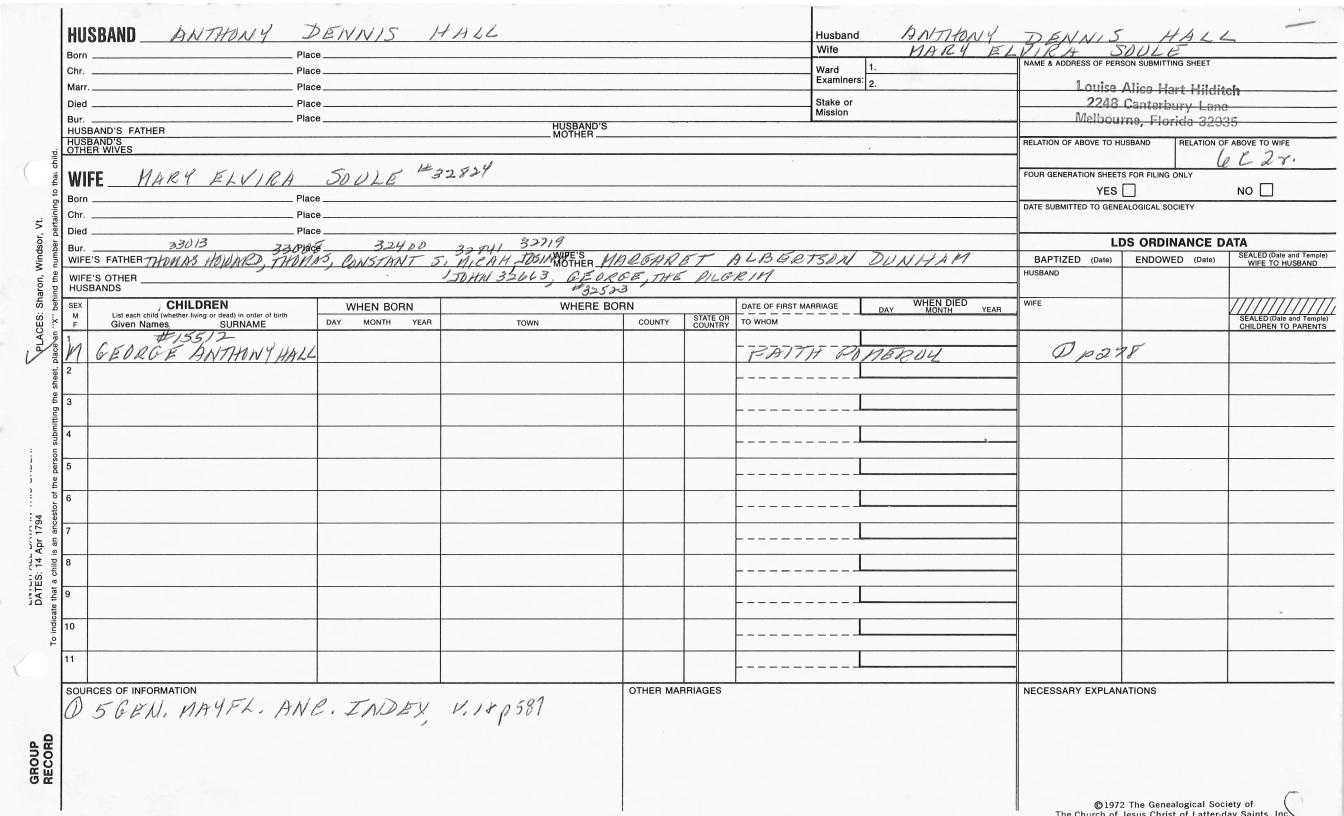 HUSBAND ANTHONY DENNIS HALL
Born Place
Chr. Place
Marr. Place
Died Place
Bur. Place
HUSBAND'S FATHER HUSBAND'S MOTHER
HUSBAND'S OTHER WIVES
Husband ANTHONY DENNIS HALL
Wife MARY ELVIRA SOULE
Ward Examiners: 1.
2.
Stake or Mission
NAME & ADDRESS OF PERSON SUBMITTING SHEET
Louise Alice Hart Hilditch
2248 Canterbury Lane
Melbourne, Florida 32935
RELATION OF ABOVE TO HUSBAND RELATION OF ABOVE TO WIFE
6C2r.
FOUR GENERATION SHEETS FOR FILING ONLY
YES NO
DATE SUBMITTED TO GENEALOGICAL SOCIETY
WIFE MARY ELVIRA SOULE #32824
Born Place
Chr. Place
Died Place
Bur. 33013 Place 32400 32719
WIFE'S FATHER THOMAS HOWARD, THOMAS, CONSTANT S. MICAH, WIFE'S MOTHER MARGARET ALBERTSON DUNHAM
WIFE'S OTHER HUSBANDS JOHN 32663, GEORGE, THE PILGRIM
#32523
LDS ORDINANCE DATA
BAPTIZED (Date) ENDOWED (Date) SEALED (Date and Temple) WIFE TO HUSBAND
HUSBAND
WIFE
SEALED (Date and Temple) CHILDREN TO PARENTS
SEX M F
CHILDREN
List each child (whether living or dead) in order of birth
Given Names SURNAME
WHEN BORN
DAY MONTH YEAR
WHERE BORN
TOWN COUNTY STATE OR COUNTRY
DATE OF FIRST MARRIAGE
TO WHOM
WHEN DIED
DAY MONTH YEAR
#15512
1 M GEORGE ANTHONY HALL FAITH POMEROY ① p278
2
3
4
5
6
7
8
9
10
11
SOURCES OF INFORMATION
① 5 GEN. MAYFL. ANC. INDEX, V.18 p587
OTHER MARRIAGES
NECESSARY EXPLANATIONS
©1972 The Genealogical Society of
The Church of Jesus Christ of Latter-day Saints, Inc.
PLACES: Sharon, Windsor, Vt.
DATES: 14 Apr 1794
To indicate that a child is an ancestor of the person submitting the sheet, place an "X" behind the number pertaining to that child.
GROUP RECORD